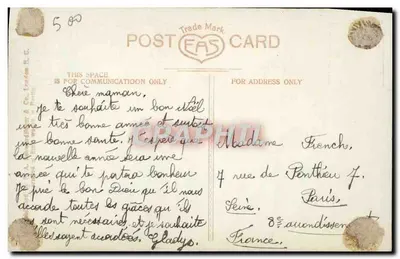 5 00
Trade Mark
POST CARD
EAS
THIS SPACE
IS FOR COMMUNICATION ONLY
FOR ADDRESS ONLY
Chère maman,
je te souhaite un bon Noël
une très bonne année et surtout
une bonne santé. J'espère que
la nouvelle année sera une
année qui te portra bonheur
Je prie le bon Dieu qu'il nous
acorde toutes les grâces qu'il
sont nécessaires et je souhaite
Gladys.
CPARAMA
Madame French,
7 rue de Ponthieu 7.
Paris.
Seine.
8e arondissement
France.